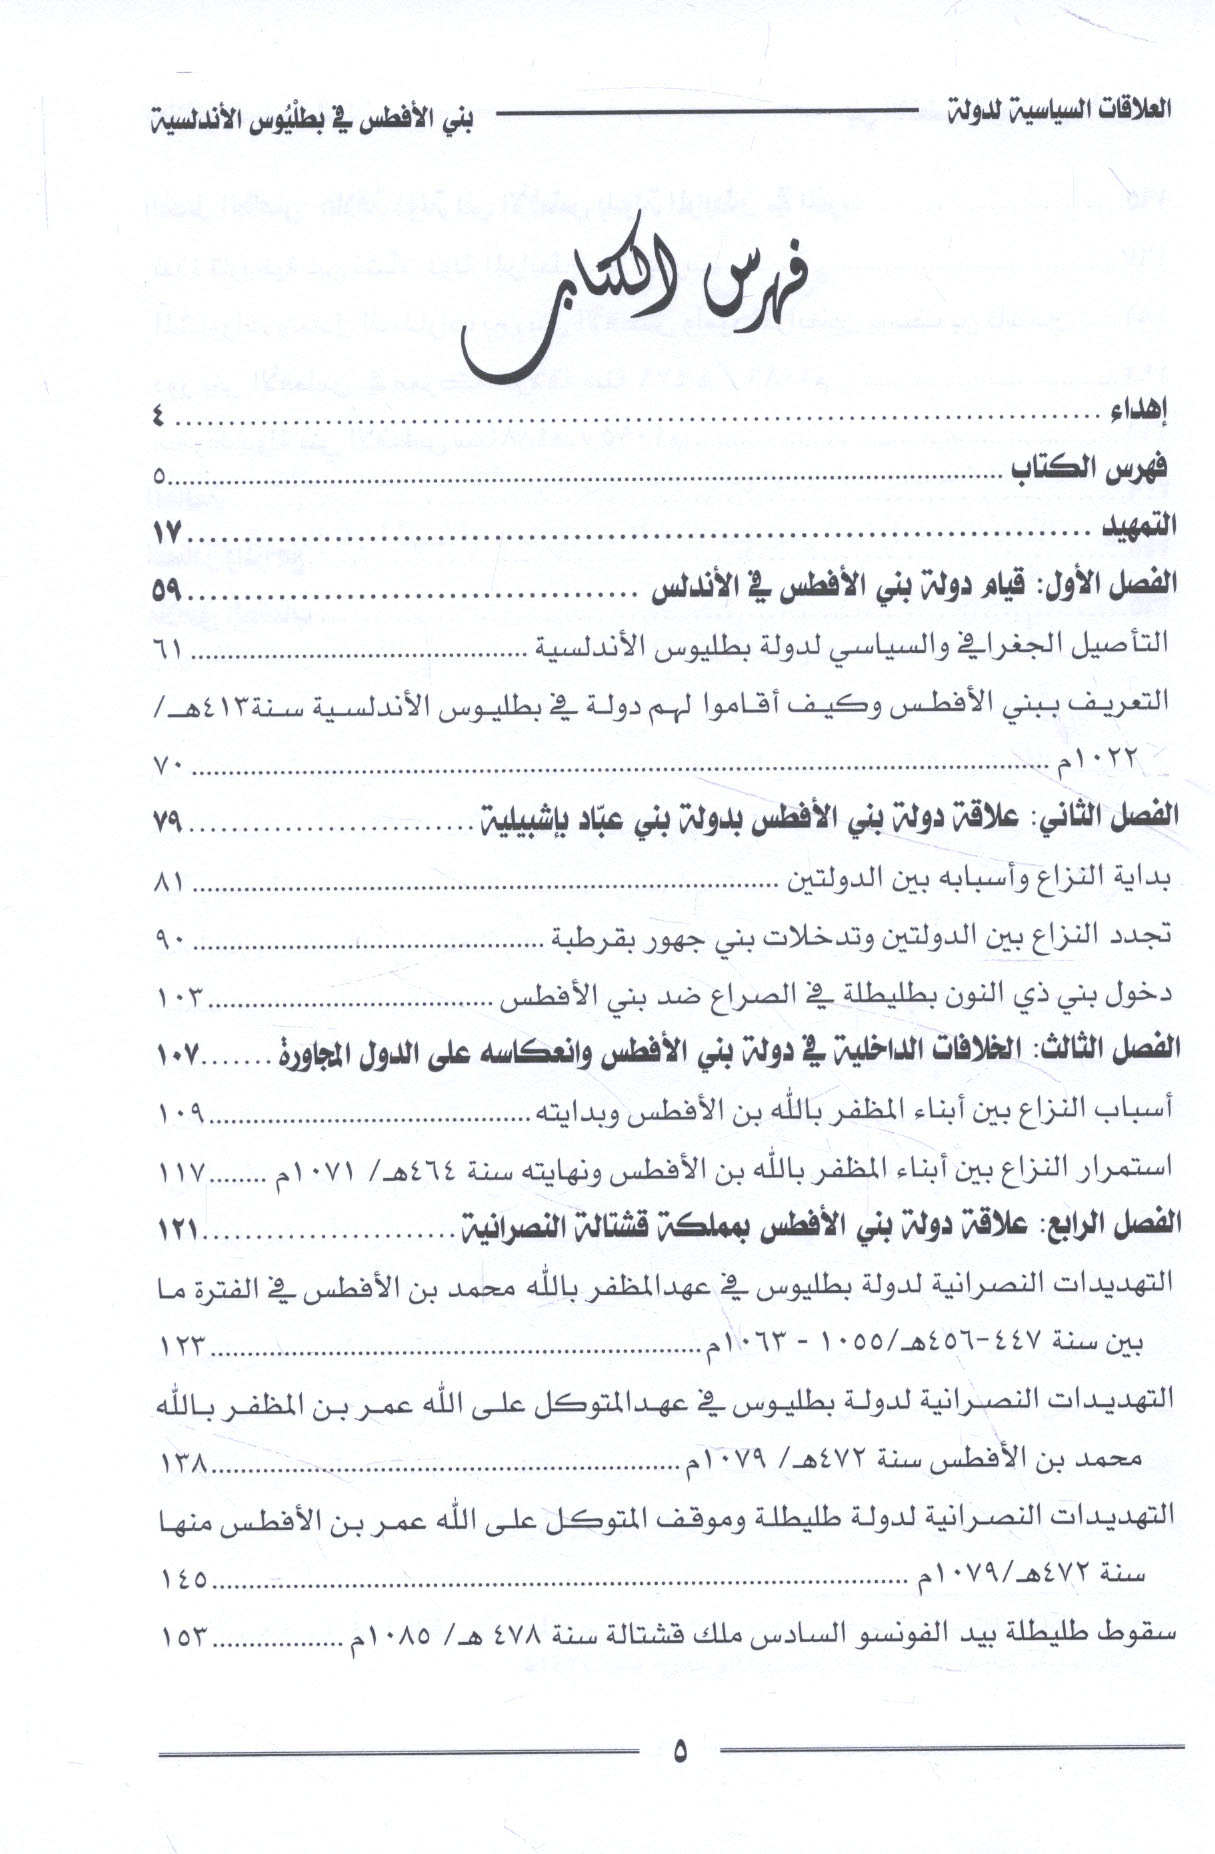 العلاقات السياسية لدولة بني الأفطس في بطلْيُوس الأندلسية
فهرس الكتاب
إهداء ........ ٤
فهرس الكتاب ........ ٥
التمهيد ........ ١٧
الفصل الأول: قيام دولة بني الأفطس في الأندلس ........ ٥٩
التأصيل الجغرافي والسياسي لدولة بطليوس الأندلسية ........ ٦١
التعريف ببني الأفطس وكيف أقاموا لهم دولة في بطليوس الأندلسية سنة٤١٣هـ/
١٠٢٢م ........ ٧٠
الفصل الثاني: علاقة دولة بني الأفطس بدولة بني عبّاد بإشبيلية ........ ٧٩
بداية النزاع وأسبابه بين الدولتين ........ ٨١
تجدد النزاع بين الدولتين وتدخلات بني جهور بقرطبة ........ ٩٠
دخول بني ذي النون بطليطلة في الصراع ضد بني الأفطس ........ ١٠٣
الفصل الثالث: الخلافات الداخلية في دولة بني الأفطس وانعكاسه على الدول المجاورة ........ ١٠٧
أسباب النزاع بين أبناء المظفر بالله بن الأفطس وبدايته ........ ١٠٩
استمرار النزاع بين أبناء المظفر بالله بن الأفطس ونهايته سنة ٤٦٤هـ/ ١٠٧١م ........ ١١٧
الفصل الرابع: علاقة دولة بني الأفطس بمملكة قشتالة النصرانية ........ ١٢١
التهديدات النصرانية لدولة بطليوس في عهدالمظفر بالله محمد بن الأفطس في الفترة ما
بين سنة ٤٤٧-٤٥٦هـ/١٠٥٥ - ١٠٦٣م ........ ١٢٣
التهديدات النصرانية لدولة بطليوس في عهدالمتوكل على الله عمر بن المظفر بالله
محمد بن الأفطس سنة ٤٧٢هـ/ ١٠٧٩م ........ ١٣٨
التهديدات النصرانية لدولة طليطلة وموقف المتوكل على الله عمر بن الأفطس منها
سنة ٤٧٢هـ/١٠٧٩م ........ ١٤٥
سقوط طليطلة بيد الفونسو السادس ملك قشتالة سنة ٤٧٨ هـ/ ١٠٨٥م ........ ١٥٣
٥